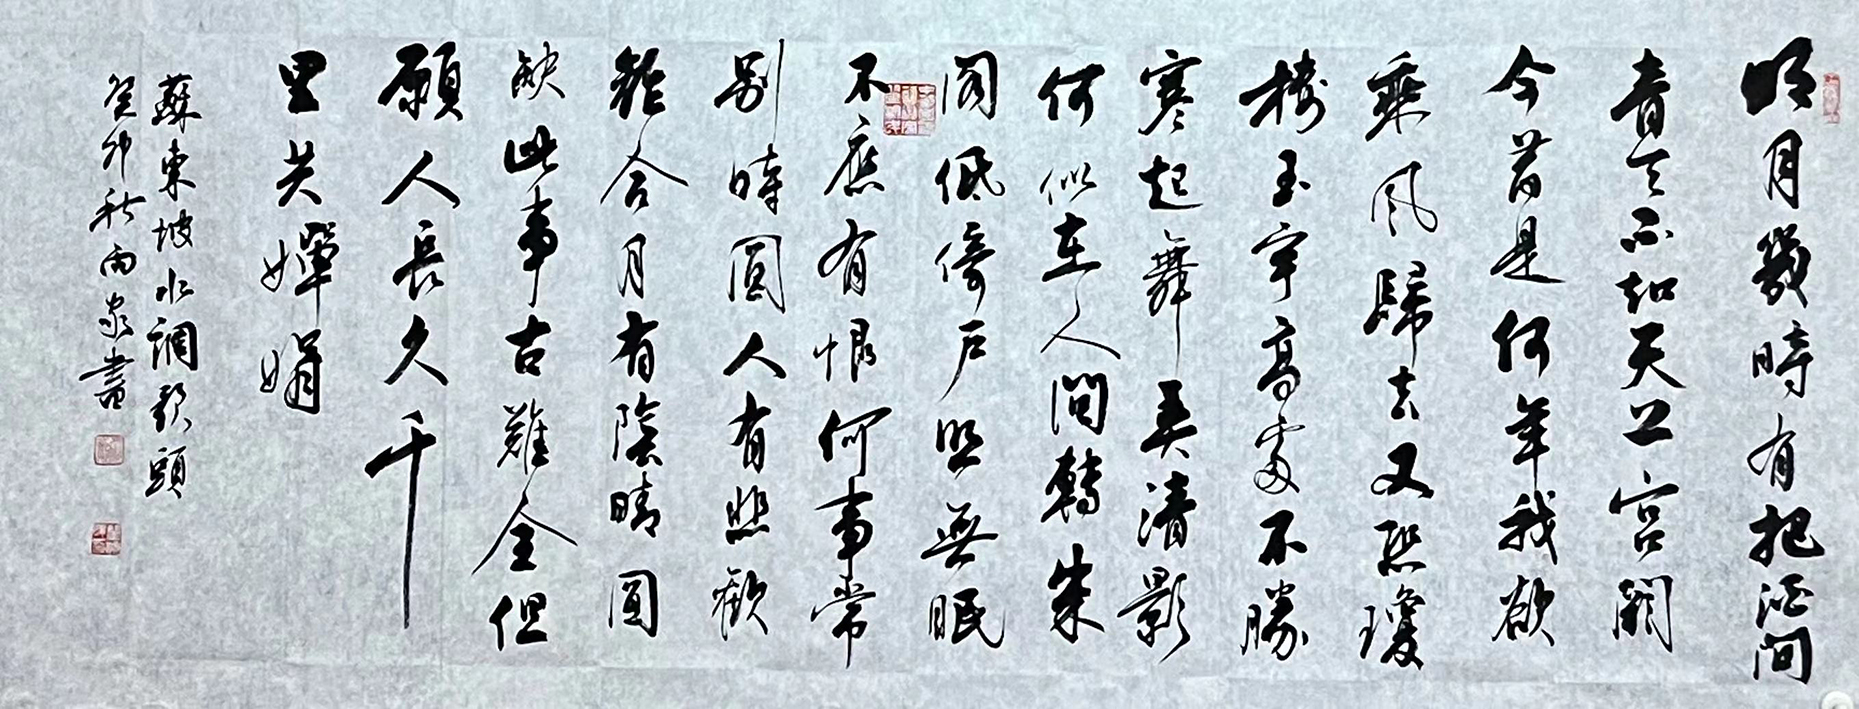 明月幾時有把酒問
青天不知天上宮闕
今昔是何年我欲
乘風歸去又恐瓊
樓玉宇高處不勝
寒起舞弄清影
何似在人間轉朱
閣低倚戶照無眠
不應有恨何事常
别時圓人有悲歡
離合月有陰晴圓
缺此事古難全但
願人長久千
里共嬋娟
蘇東坡水調歌頭
癸卯秋雨書